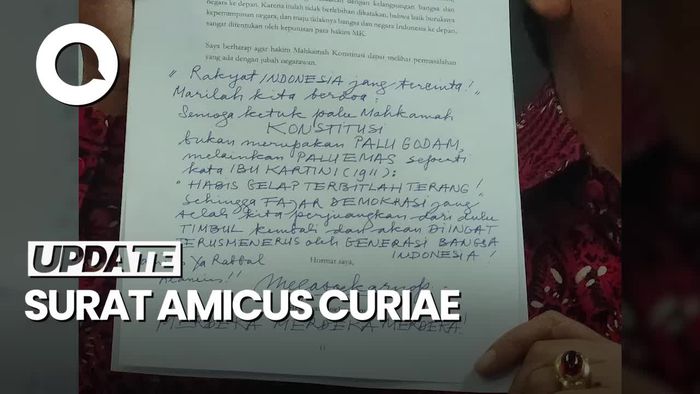 negara ke depan. Karena itulah tidak berlebihan dikatakan, bahwa baik buruknya
kepemimpinan negara, dan maju tidaknya bangsa dan negara Indonesia ke depan,
sangat ditentukan oleh keputusan para hakim MK.
Saya berharap agar hakim Mahkamah Konstitusi dapat melihat permasalahan
yang ada dengan jubah negarawan.
" Rakyat INDONESIA jang tercinta!
Marilah kita berdoa :
Semoga ketuk palu Mahkamah
KONSTITUSI
bukan merupakan PALU GODAM,
melainkan PALU EMAS seperti
kata IBU KARTINI (1911) :
" HABIS GELAP TERBITLAH TERANG !
Sehingga FAJAR DEMOKRASI jang
telah kita perjuangkan dari dulu
TIMBUL kembali dan akan DIINGAT
TERUSMENERUS oleh GENERASI BANGSA
INDONESIA !
Ya Rabbal
Hormat saya,
MERDEKA MERDEKA MERDEKA !
11
UPDATE
SURAT AMICUS CURIAE